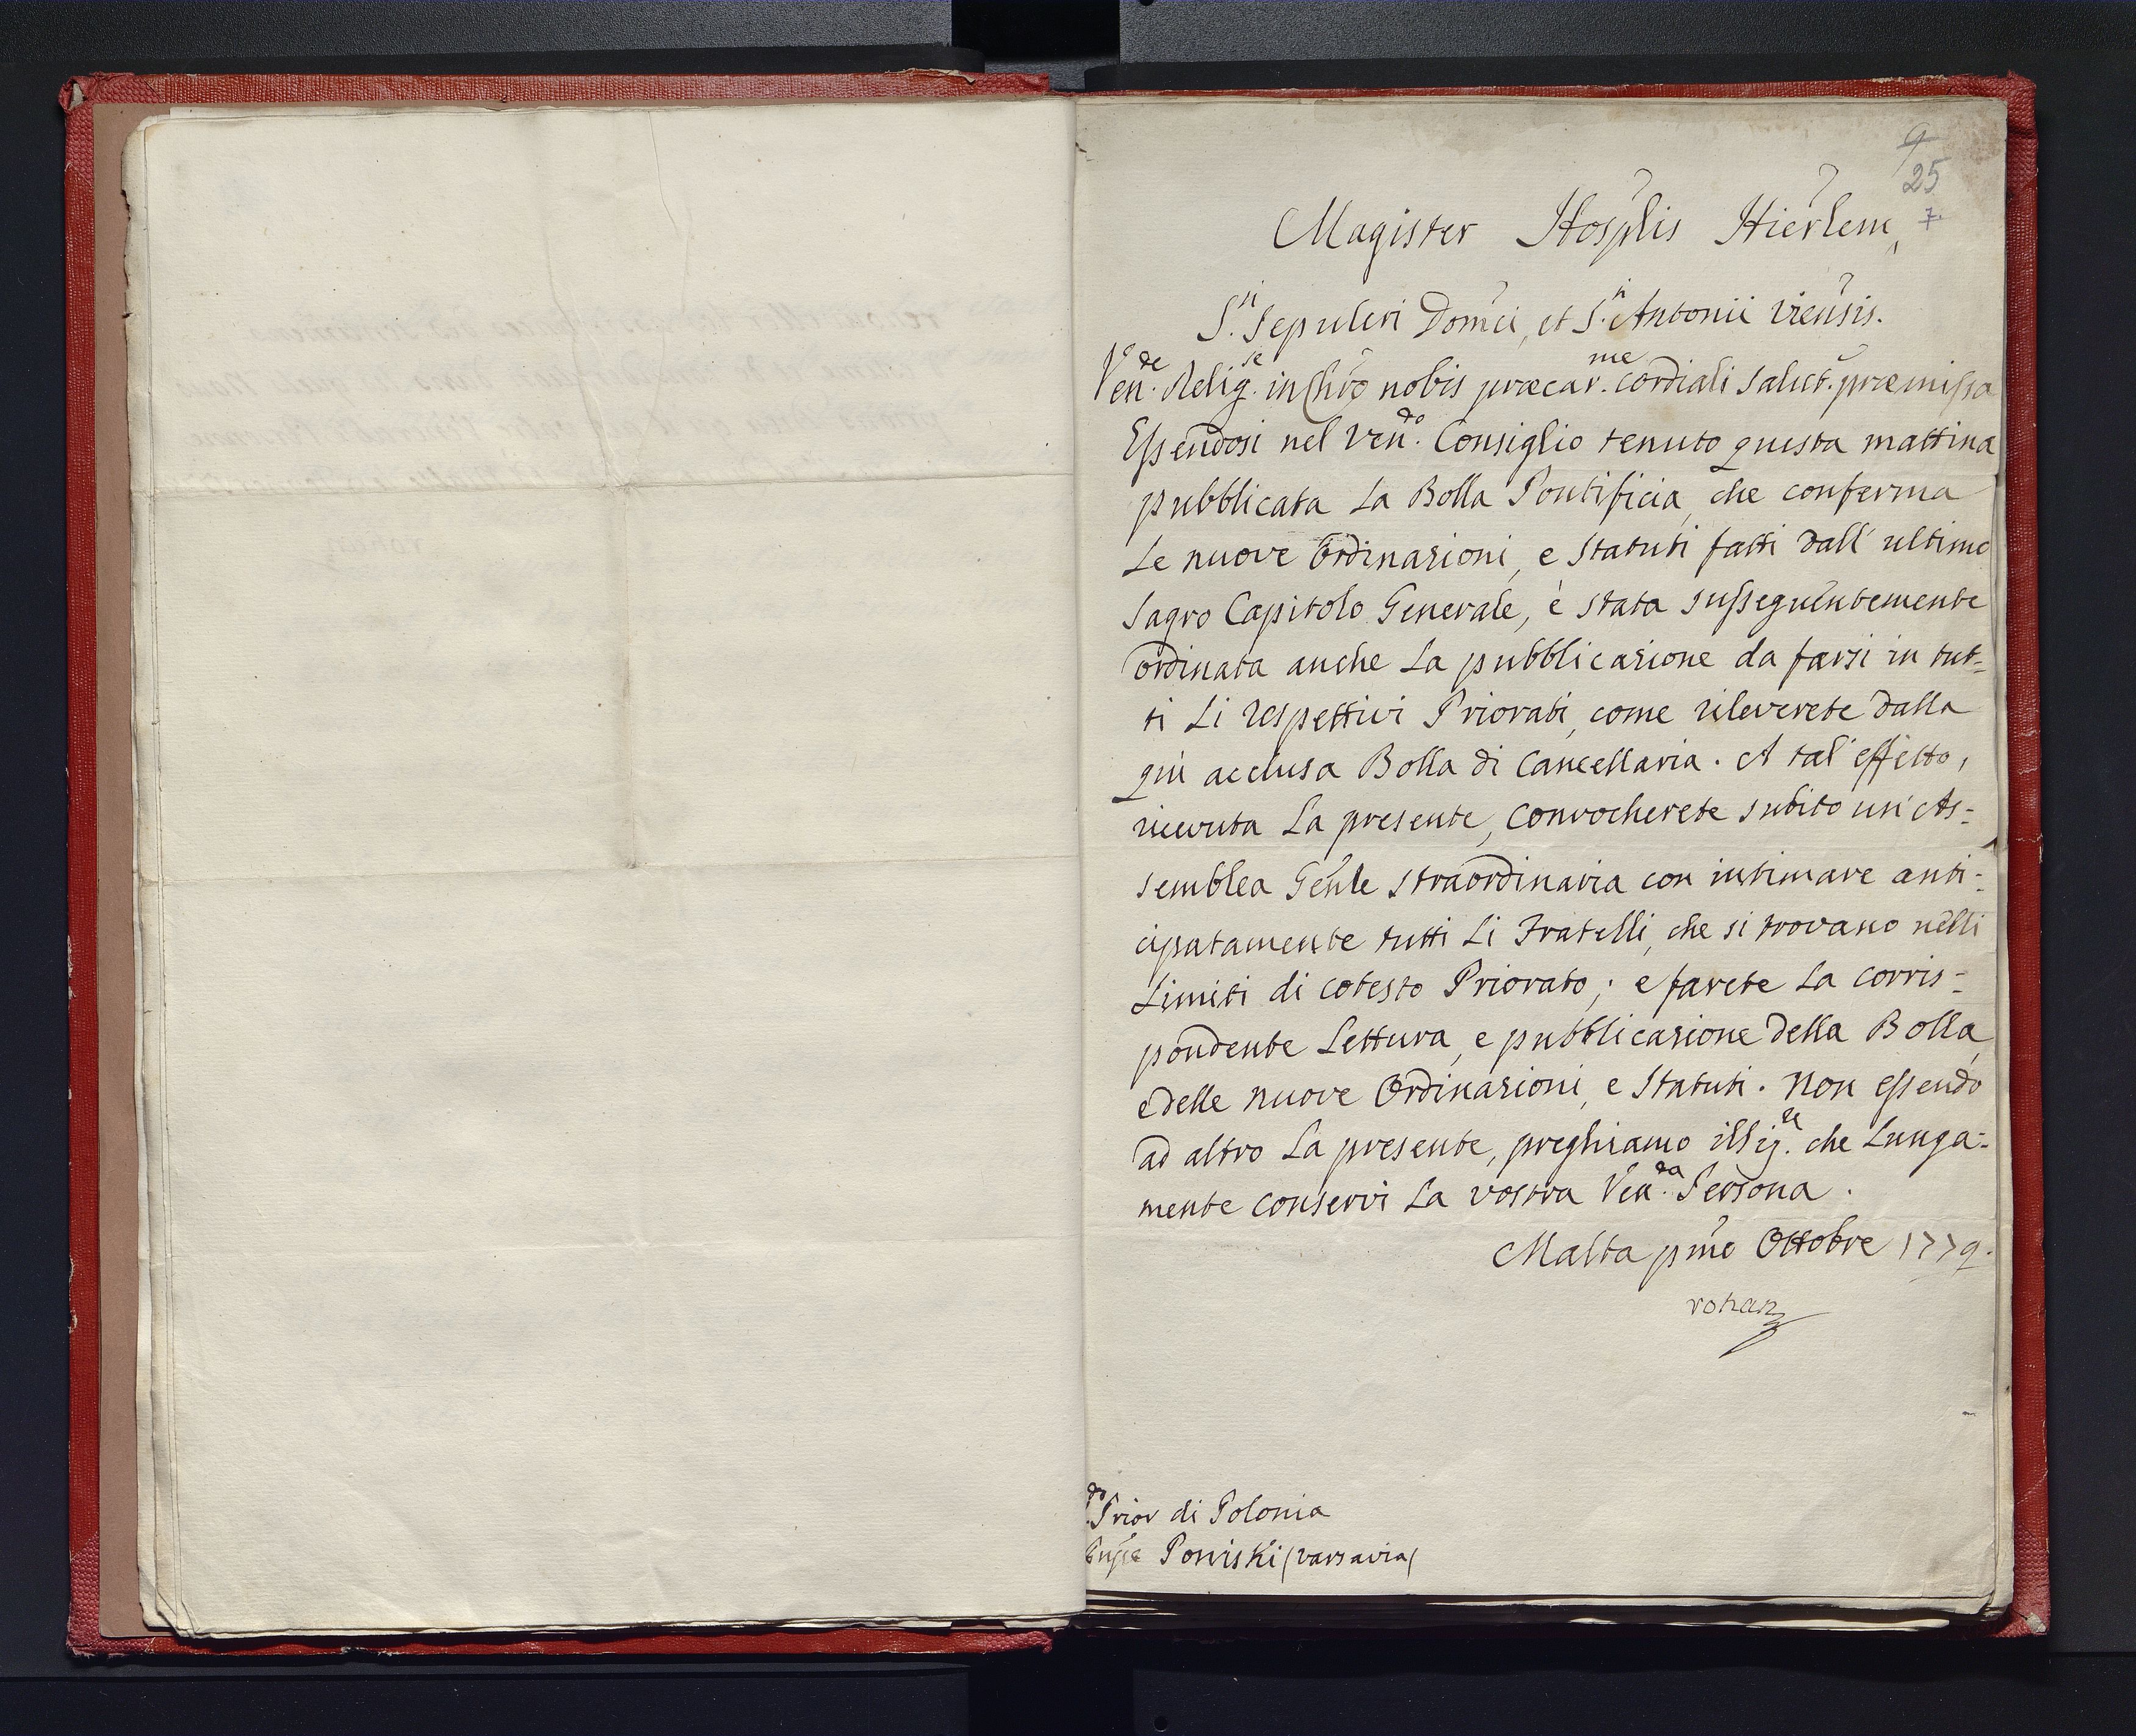 9
25
7.
Magister Hosplis Hierlem,
S.ti Sepulcri Domci, et S.ti Antonii Viensis.
Ven.de Relig.se in Chro nobis præcar.me cordiali salut. præmissa
Essendosi nel Ven.do Consiglio tenuto questa mattina
pubblicata La Bolla Pontificia, che conferma
Le nuove Ordinazioni, e Statuti fatti dall' ultimo
Sagro Capitolo Generale, è stata susseguentemente
ordinata anche La pubblicazione da farsi in tut=
ti Li respettivi Priorati, come rileverete dalla
quì acclusa Bolla di Cancellaria. A tal' effetto,
ricevuta La presente, convocherete subito un' As=
semblea Genle straordinaria con intimare anti=
cipatamente tutti Li Fratelli, che si trovano nelli
Limiti di cotesto Priorato; e farete La corris=
pondente Lettura, e pubblicazione della Bolla,
e delle nuove Ordinazioni, e Statuti. Non essendo
ad altro La presente, preghiamo il Sig.re che Lunga=
mente conservi La vostra Ven.da Persona.
Malta pmo Ottobre 1779.
rohan
do Prior di Polonia
Poniski (varsavia(